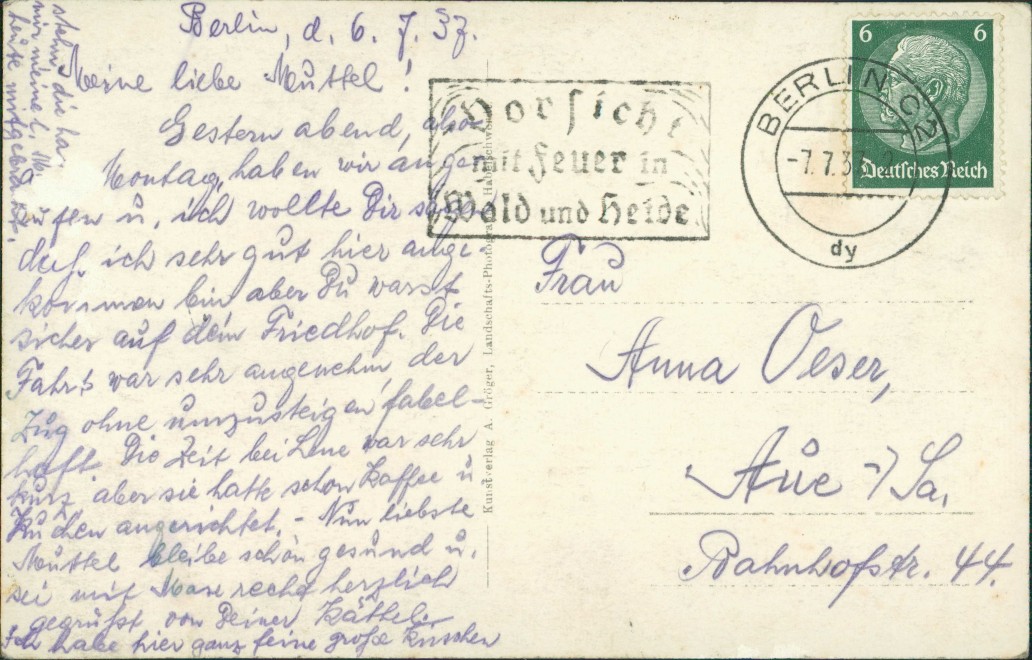 Berlin, d. 6. 7. 37.
Meine liebe Muttel!
Gestern abend, also
Montag, haben wir ange
rufen u. ich wollte Dir
daß ich sehr gut hier ange
kommen bin aber Du warst
sicher auf dem Friedhof. Die
Fahrt war sehr angenehm, der
Zug ohne umzusteigen fabel-
haft. Die Zeit bei Lene war sehr
kurz aber sie hatte schon Kaffee u
Kuchen angerichtet. - Nun liebste
Muttel bleibe schön gesund u.
sei mit recht herzlich
gegrüßt von Deiner Käthel.
Ich habe hier ganz feine große Kirschen
stehn die ha.
mir meine l.
heute mitgebracht.
Vorsicht
mit Feuer in
Wald und Heide
BERLIN C2
-7.7.37
dy
6 6
Deutsches Reich
Kunstverlag A. Gröger, Landschafts-Photograf
Frau
Anna Oeser,
Aue i/Sa.
Bahnhofstr. 44.